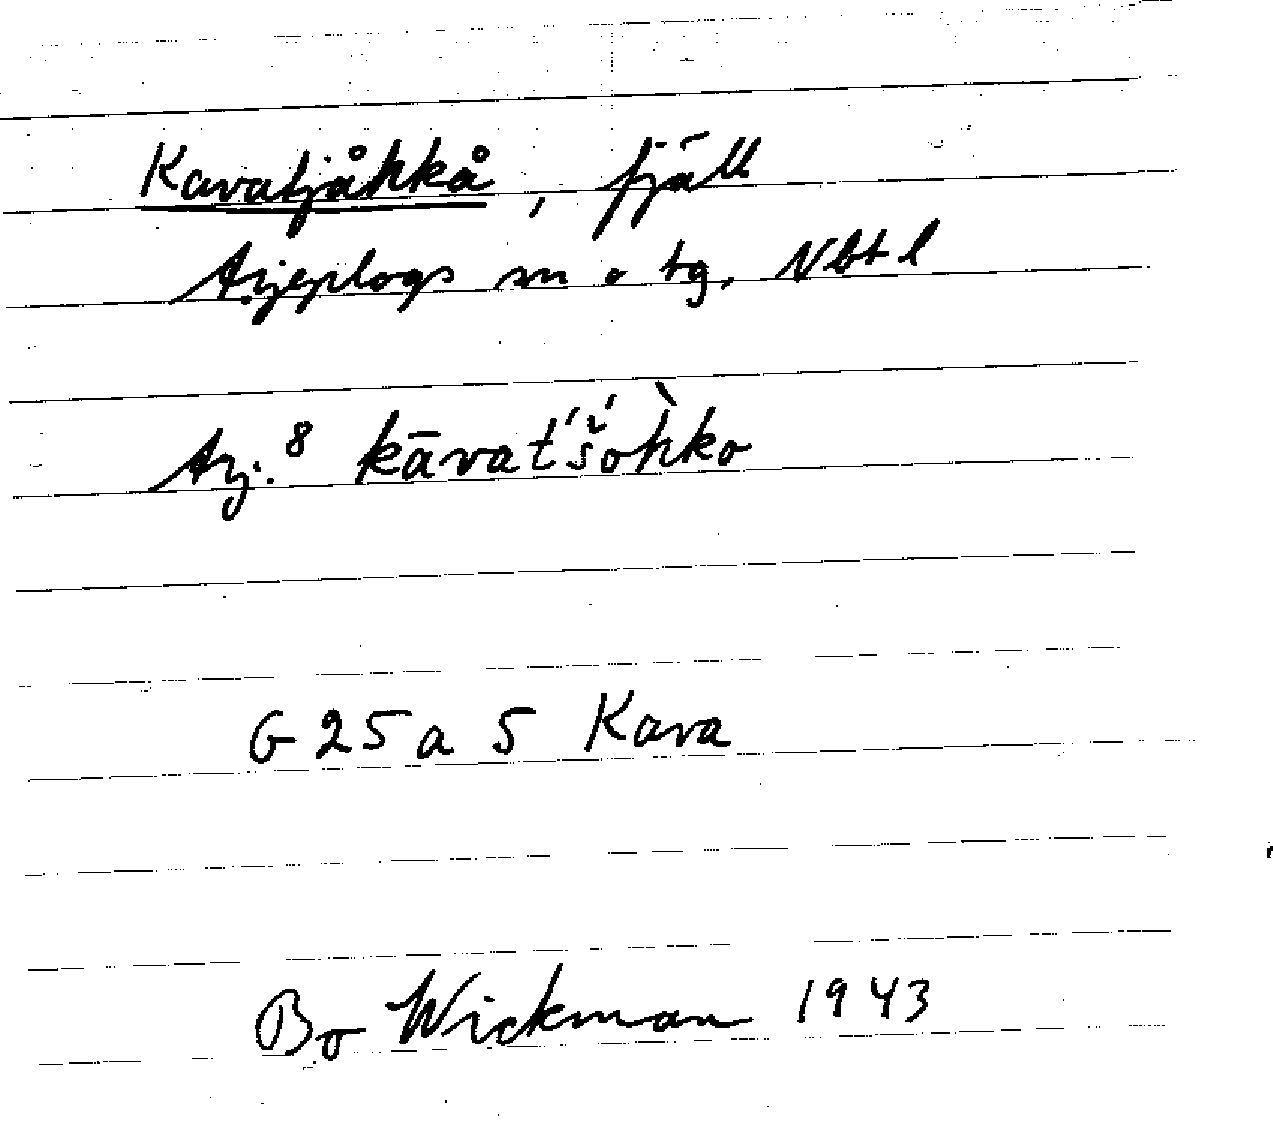 Kavatjåhkå, fjäll
Arjeplogs sn o tg, Nbtl
Arj. 8 kāvat́š́òhko
G 25 a 5 Kava
Bo Wickman 1943